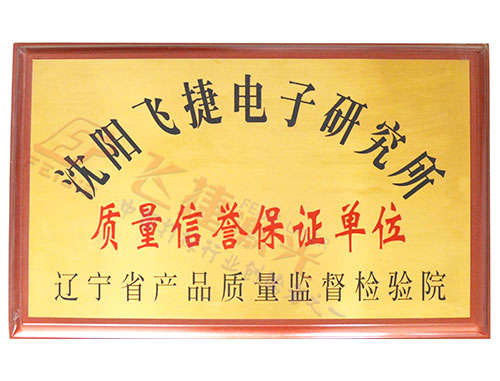 沈阳飞捷电子研究所
质量信誉保证单位
辽宁省产品质量监督检验院